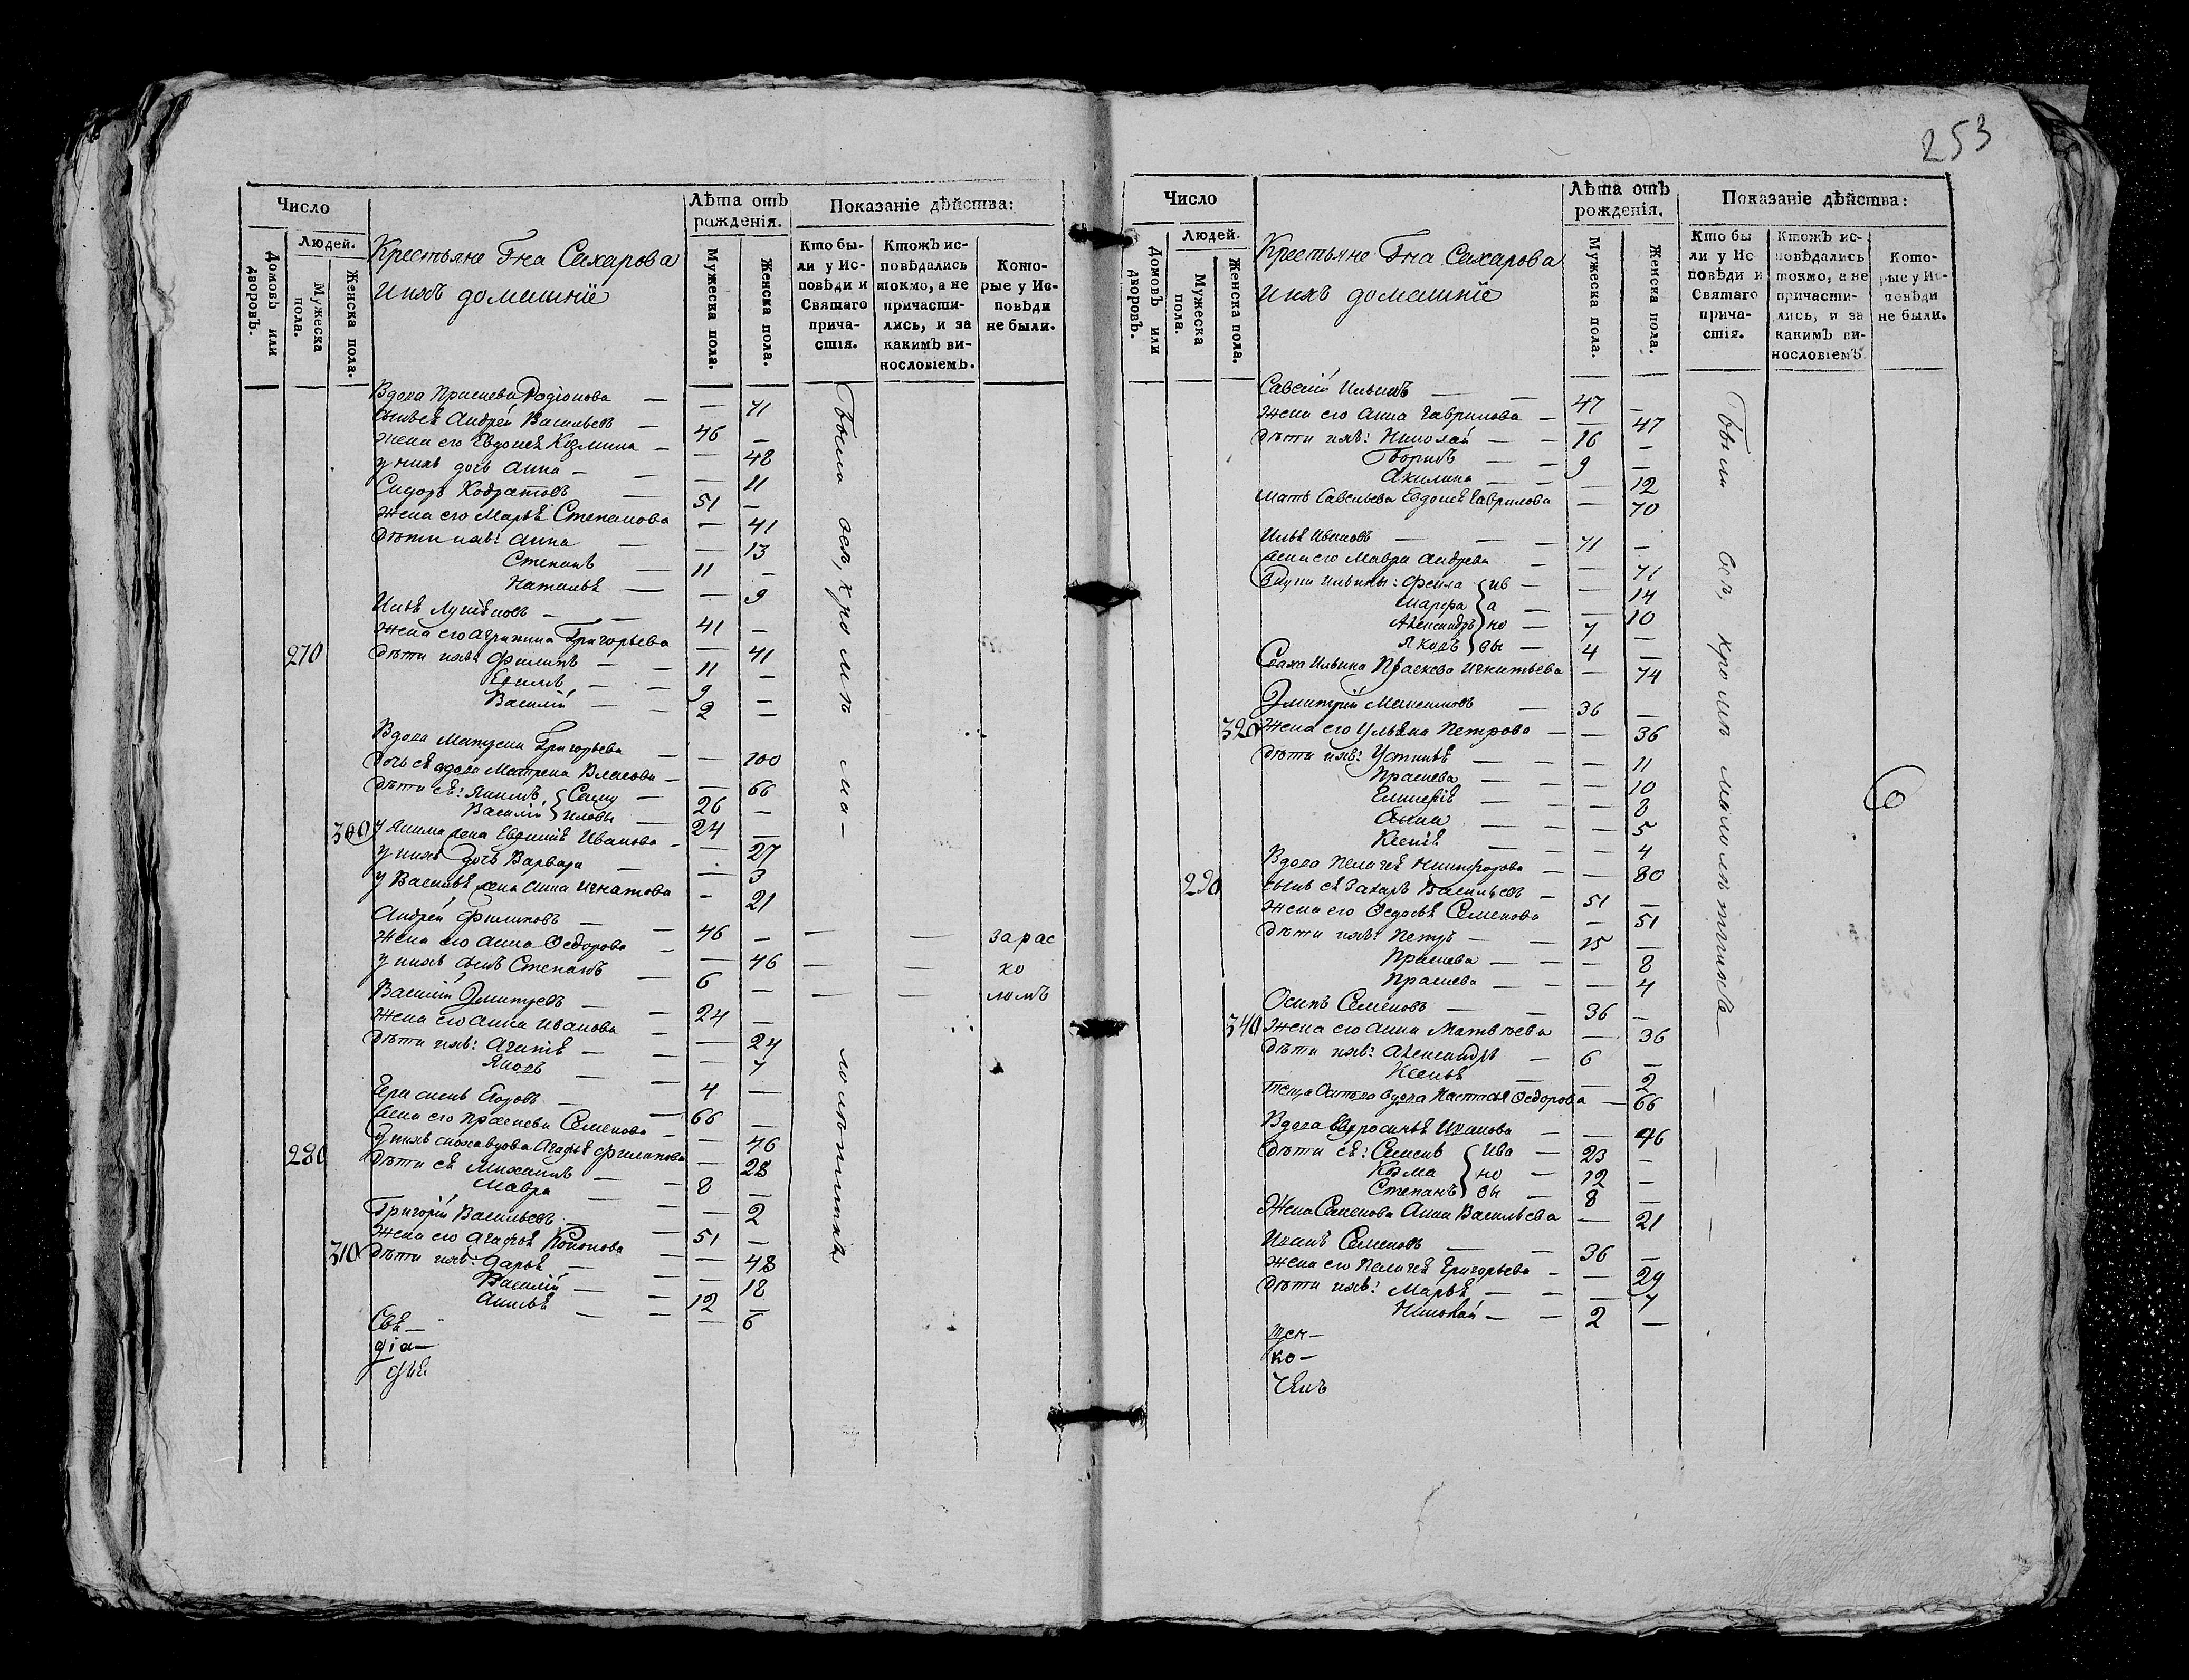 Число
Людей.
Домовъ или дворовъ.
Мужеска пола.
Женска пола.
Крестьяне Гна Сахарова
ихъ домашніе
Лѣта отъ рожденія.
Мужеска пола.
Женска пола.
Показаніе дѣйства:
Кто бы-
ли у Ис-
повѣди и
Святаго
прича-
стія.
Ктожъ ис-
повѣдались
токмо, а не
причасти-
лись, и за
какимъ ви-
нословіемъ.
Кото-
рые у Ис-
повѣди
не были.
Вдова Праскева Родіонова — — 71
Сынъ ея Андрей Васильевъ — 46 —
жена его Евдокея Козмина — — 48
у нихъ дочь Анна — — 11
Сидоръ Кодратовъ — 51 —
жена его Марья Степанова — 41
дѣти ихъ: Анна — — 13
Степанъ — 11 —
Наталья — — 9
Илья Лукяновъ — 41 —
жена его Агрипина Григорьева — 41
270 дѣти ихъ: Филипъ — 11 —
Ефимъ — 9 —
Василій — 2 —
Вдова Григорьева — — 100
дочь ея вдова Матрена Власова — — 66
дѣти ея: Якимъ, Саму 26 —
Василій иловы 24 —
300 у Якима жена Евдокия Иванова — — 27
у нихъ дочь Варвара — — 3
у Василья жена Анна Игнатова — 21
Андрей Филиповъ — 46 — — — зарас
жена его Анна Федорова — — 46 — — ко
у нихъ сынъ Степанъ — 6 — — — ломъ
Василій Дмитревъ — 24 —
жена его Анна Иванова — — 24
дѣти ихъ: — — 7
Яковъ — 4 —
Герасимъ Егоровъ — 66 —
жена его Праскева Семенова — — 46
у нихъ сноха вдова Агафья Филипова — 28
280 дѣти ея Михаилъ — 8 —
Мавра — — 2
Григорій Васильевъ — 51 —
жена его Агафья Кононова — 48
310 дѣти ихъ: Дарья — — 18
Василій — 12 —
Анисья — — 6
Были всѣ, кромѣ ма-
лолѣтнихъ
Свя—
діа—
фья
253
Число
Людей.
Домовъ или дворовъ.
Мужеска пола.
Женска пола.
Крестьяне Гна Сахарова
ихъ домашніе
Лѣта отъ рожденія.
Мужеска пола.
Женска пола.
Показаніе дѣйства:
Кто бы
ли у Ис
повѣди и
Святаго
прича-
стія.
Ктожъ ис-
повѣдались
токмо, а не
причасти-
лись, и за
какимъ ви-
нословіемъ.
Кото-
рые у Ис-
повѣди
не были.
Савелій Ильинъ — — 47 —
жена его Анна Гаврилова — — 47
дѣти ихъ: Николай — — 16 —
Борисъ — — 9 —
Акилина — — — 12
мать Савельева Евдокея Гаврилова — 70
Илья Ивановъ — — 71 —
жена его Мавра Андрева — — 71
внуки Ильины: Фекла ив — — 14
Марфа а — — 10
Александръ но — 7 —
Яковъ вы — 4 —
Сваха Ильина Праскева Игнатьева — 74
Дмитрій Максимовъ — 36 —
320 жена его Ульяна Петрова — — 36
дѣти ихъ: Устинья — — — 11
Праскева — — — 10
— — — 8
Анна — — — 5
Ксенія — — — 4
Вдова Пелагея Никифорова — — 80
290 сынъ ея Захаръ Васильевъ — 51 —
жена его Федосья Семенова — 51
дѣти ихъ: Петръ — — 15 —
Праскева — — — 8
Праскева — — — 4
Осипъ Семеновъ — — 36 —
340 жена его Анна Матвѣева — 36
дѣти ихъ: Александръ — 6 —
Ксенья — — 2
теща Осипова вдова Настасья Федорова — 66
Вдова Ефросинья Иванова — — 46
дѣти ея: Семенъ Ива — 23 —
Козма но — 12 —
Степанъ вы — 8 —
Жена Семенова Анна Васильева — 21
Иванъ Семеновъ — — 36 —
жена его Пелагея Григорьева — — 29
дѣти ихъ: Марья — — — 7
Николай — — 2 —
Были всѣ, кромѣ малолѣтнихъ
щен—
ко—